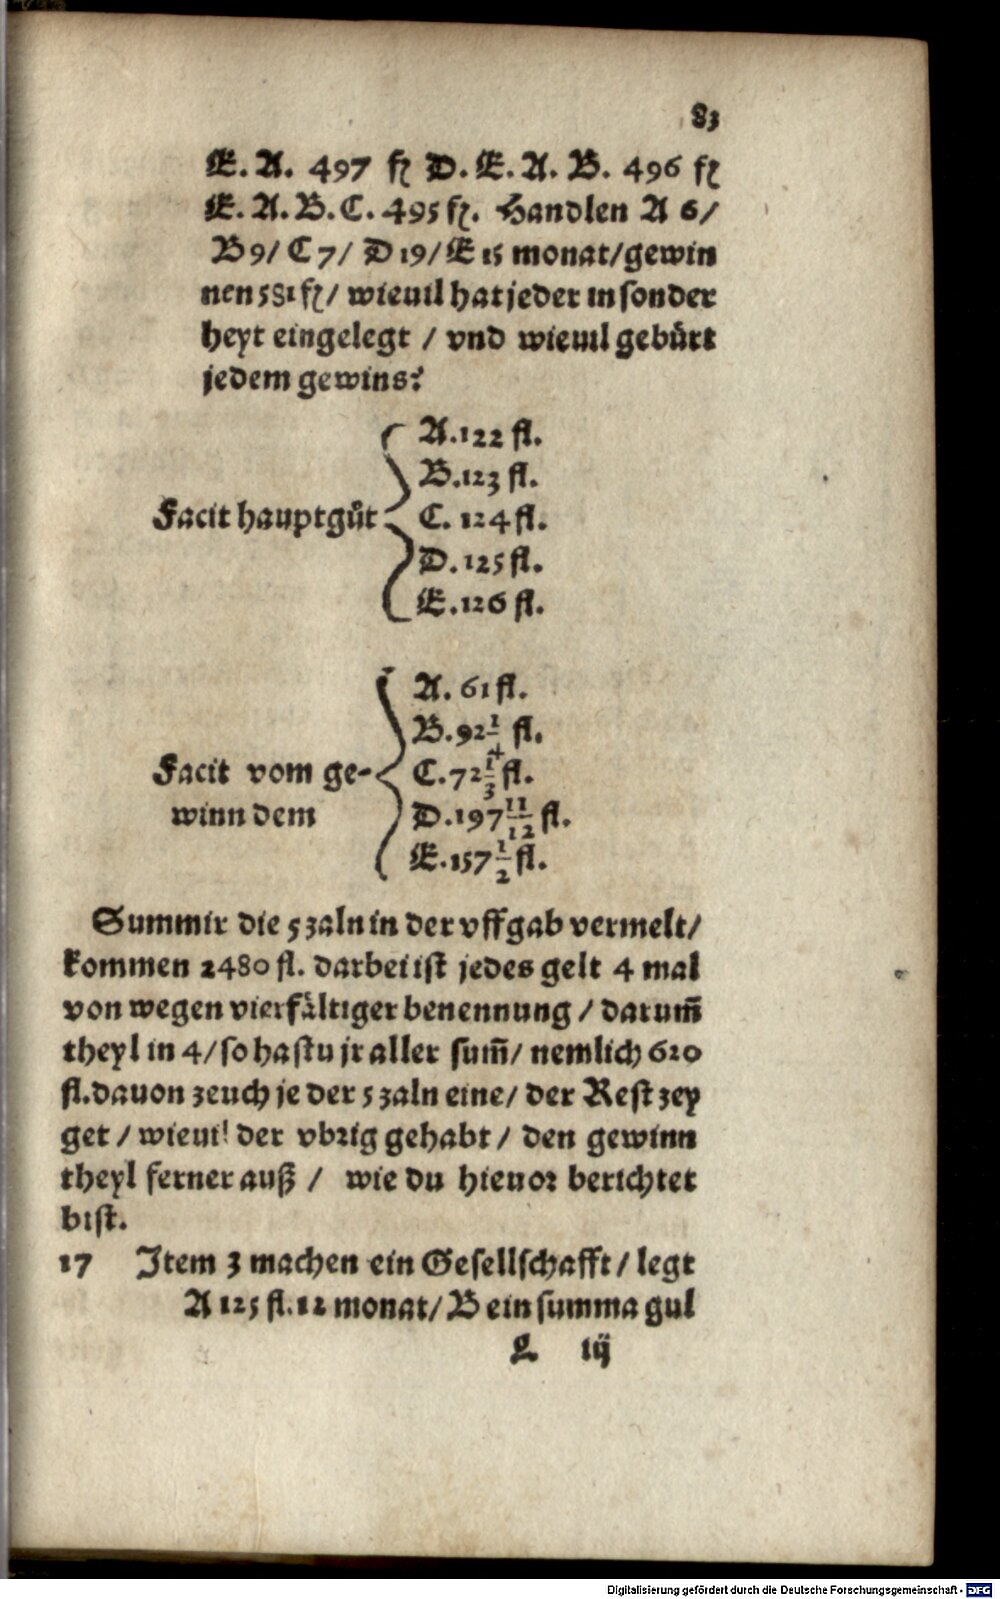 83
E. A. 497 fl D. E. A. B. 496 fl
E. A. B. C. 495 fl. Handlen A 6/
B 9/ C 7/ D 19/ E 15 monat/ gewin
nen 581 fl/ wieuil hat jeder in sonder
heyt eingelegt / vnd wieuil gebuͤrt
jedem gewins?
A. 122 fl.
B. 123 fl.
Facit hauptguͦt C. 124 fl.
D. 125 fl.
E. 126 fl.
A. 61 fl.
B. 92 1/4 fl.
Facit vom ge- C. 72 1/3 fl.
winn dem D. 197 11/12 fl.
E. 157 1/2 fl.
Summir die 5 zaln in der vffgab vermelt/
kommen 2480 fl. darbei ist jedes gelt 4 mal
von wegen vierfaͤltiger benennung / darum̃
theyl in 4/ so hastu jr aller sum̃/ nemlich 620
fl. dauon zeuch je der 5 zaln eine/ der Rest zey
get / wieuil der vbrig gehabt / den gewinn
theyl ferner auß / wie du hieuor berichtet
bist.
17 Item 3 machen ein Gesellschafft / legt
A 125 fl. 12 monat/ B ein summa gul
L iij
Digitalisierung gefördert durch die Deutsche Forschungsgemeinschaft - DFG